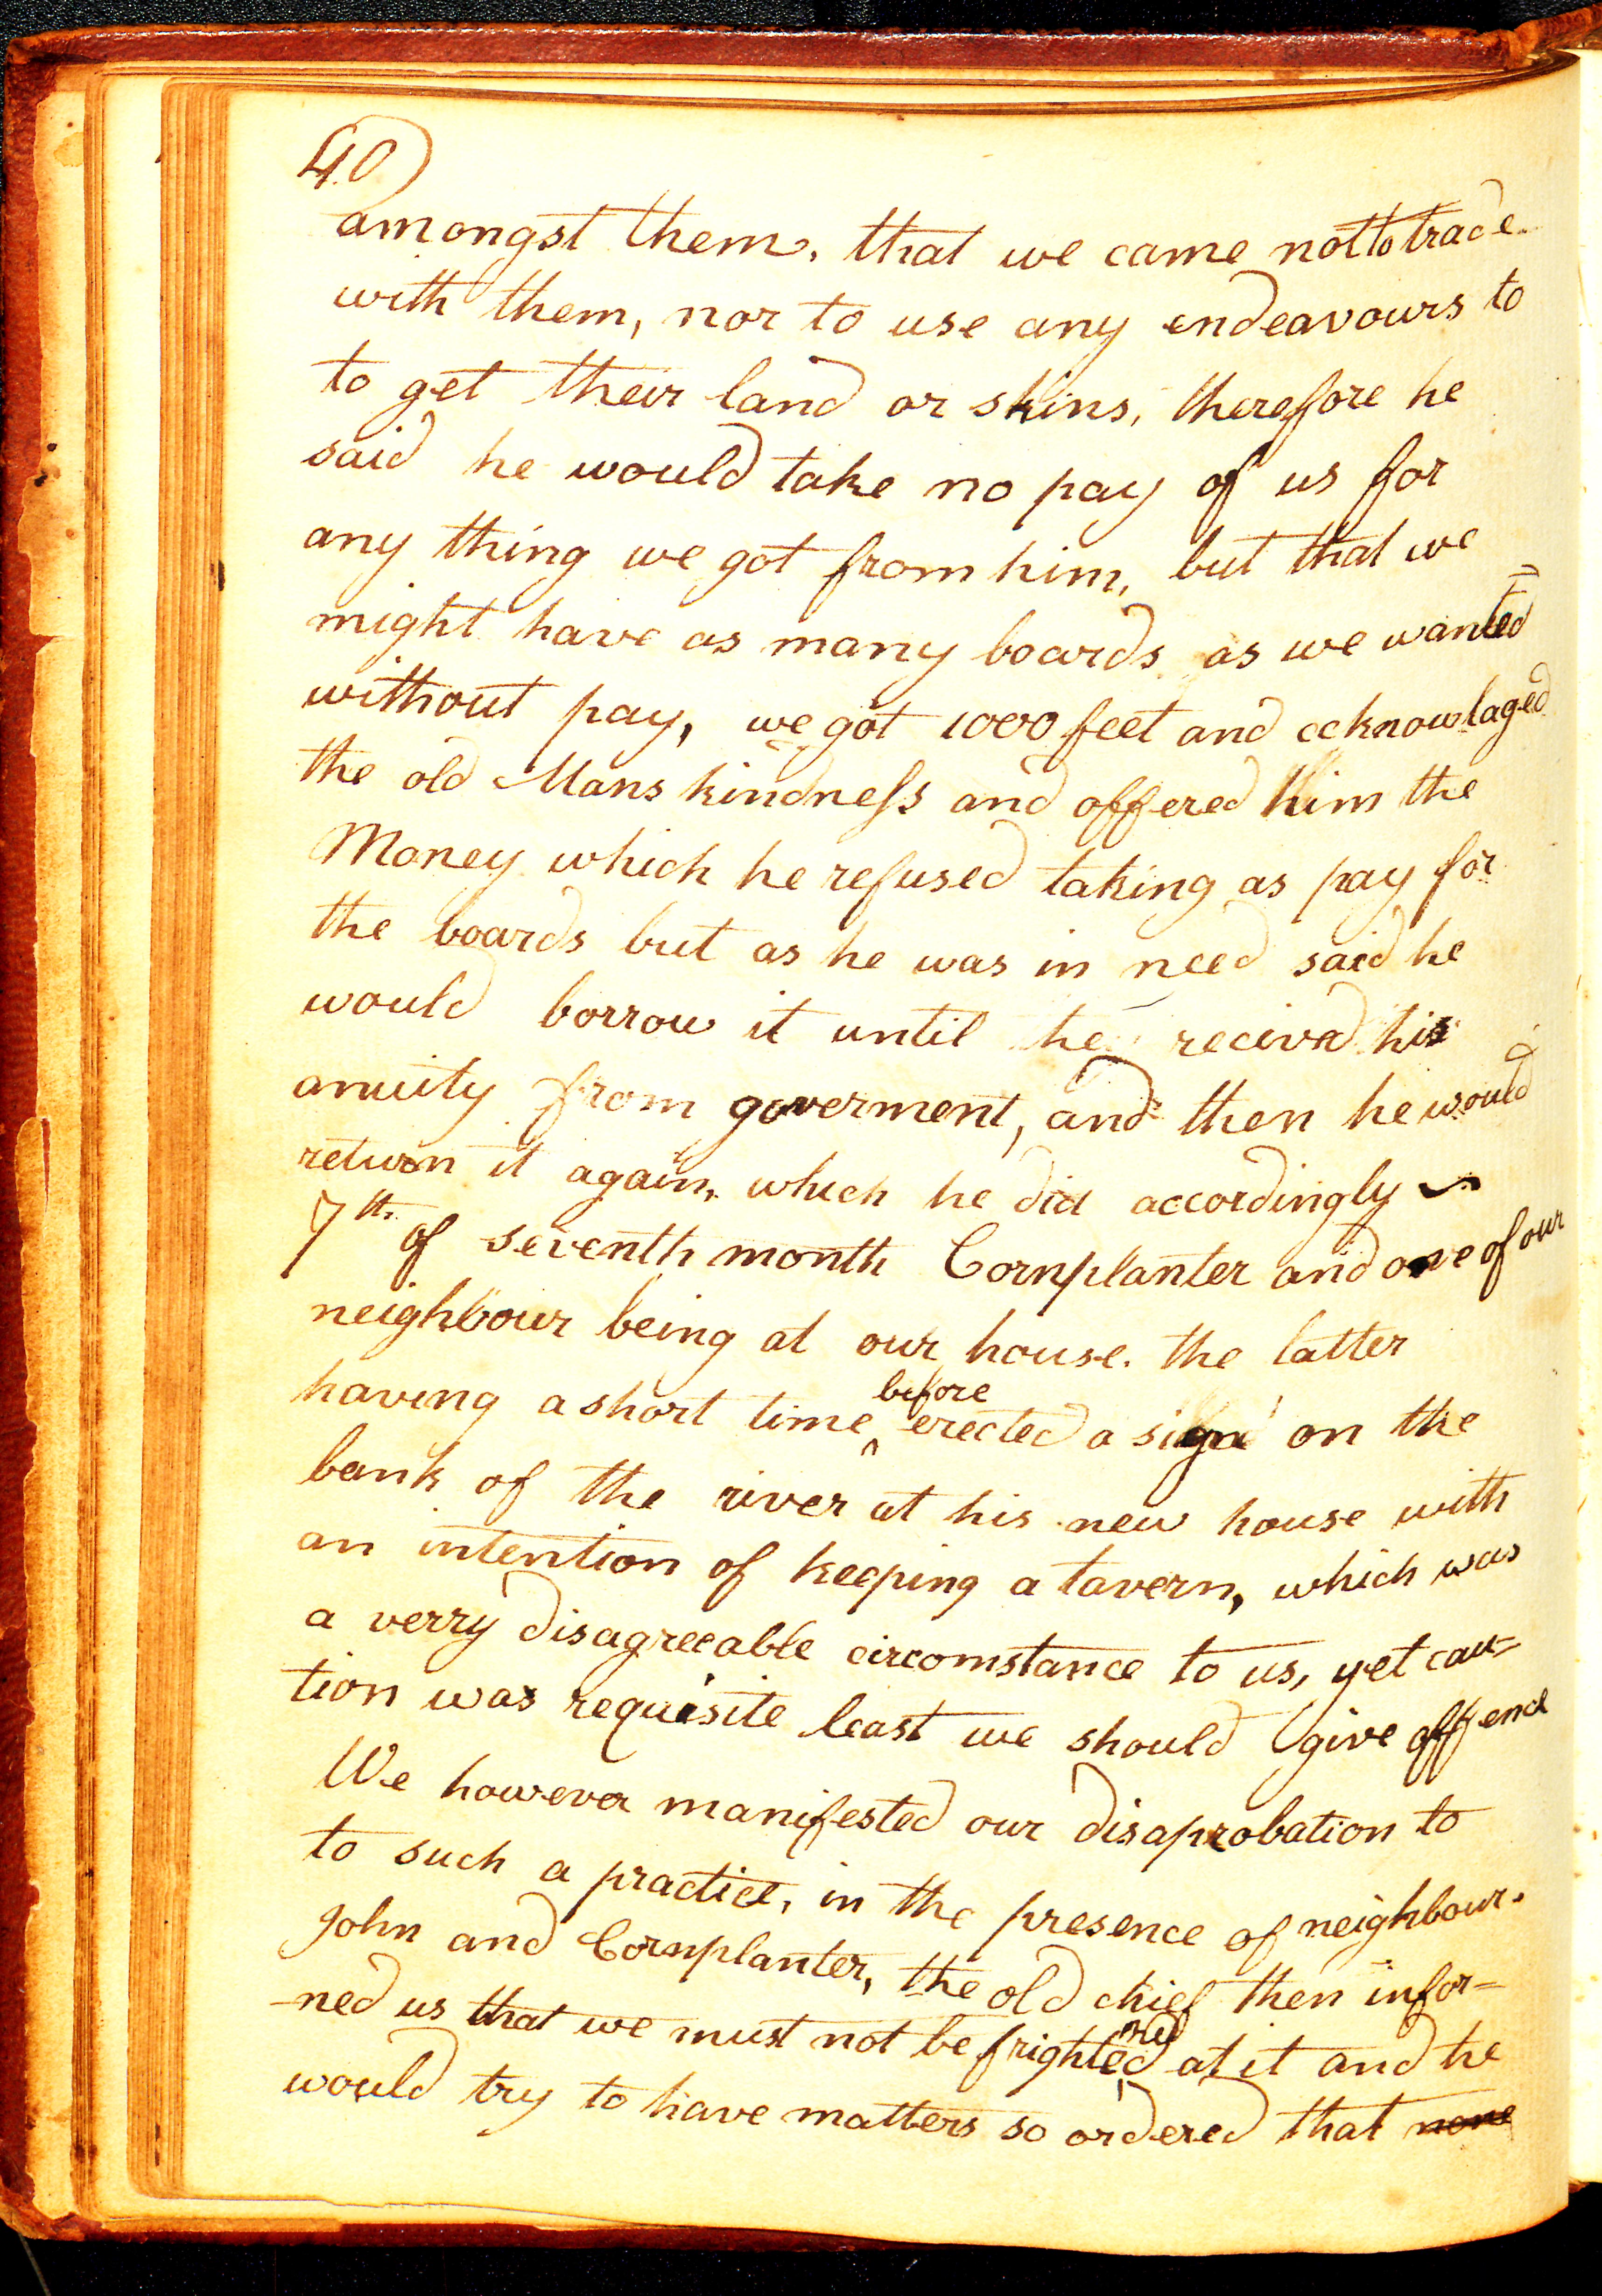 40)
amongst them, that we came not to trade
with them, nor to use any endeavours to
to get their land or skins, therefore he
said he would take no pay of us for
any thing we got from him, but that we
might have as many boards as we wanted
without pay, we got 1000 feet and acknowlaged
the old Mans kindness and offered him the
Money which he refused taking as pay for
the boards but as he was in need said he
would borrow it until he recived his
anuity from goverment, and then he would
return it again, which he did accordingly
7th of seventh month Cornplanter and one of our
neighbour being at our house. the latter
having a short time before erected a sign on the
bank of the river at his new house with
an intention of keeping a tavern, which was
a verry disagreeable circomstance to us, yet cau=
tion was requisite least we should give offence
We however manifested our disaprobation to
to such a practice, in the presence of neighbour
John and Cornplanter, the old chief then infor=
-ned us that we must not be frightened at it and he
would try to have matters so ordered that none